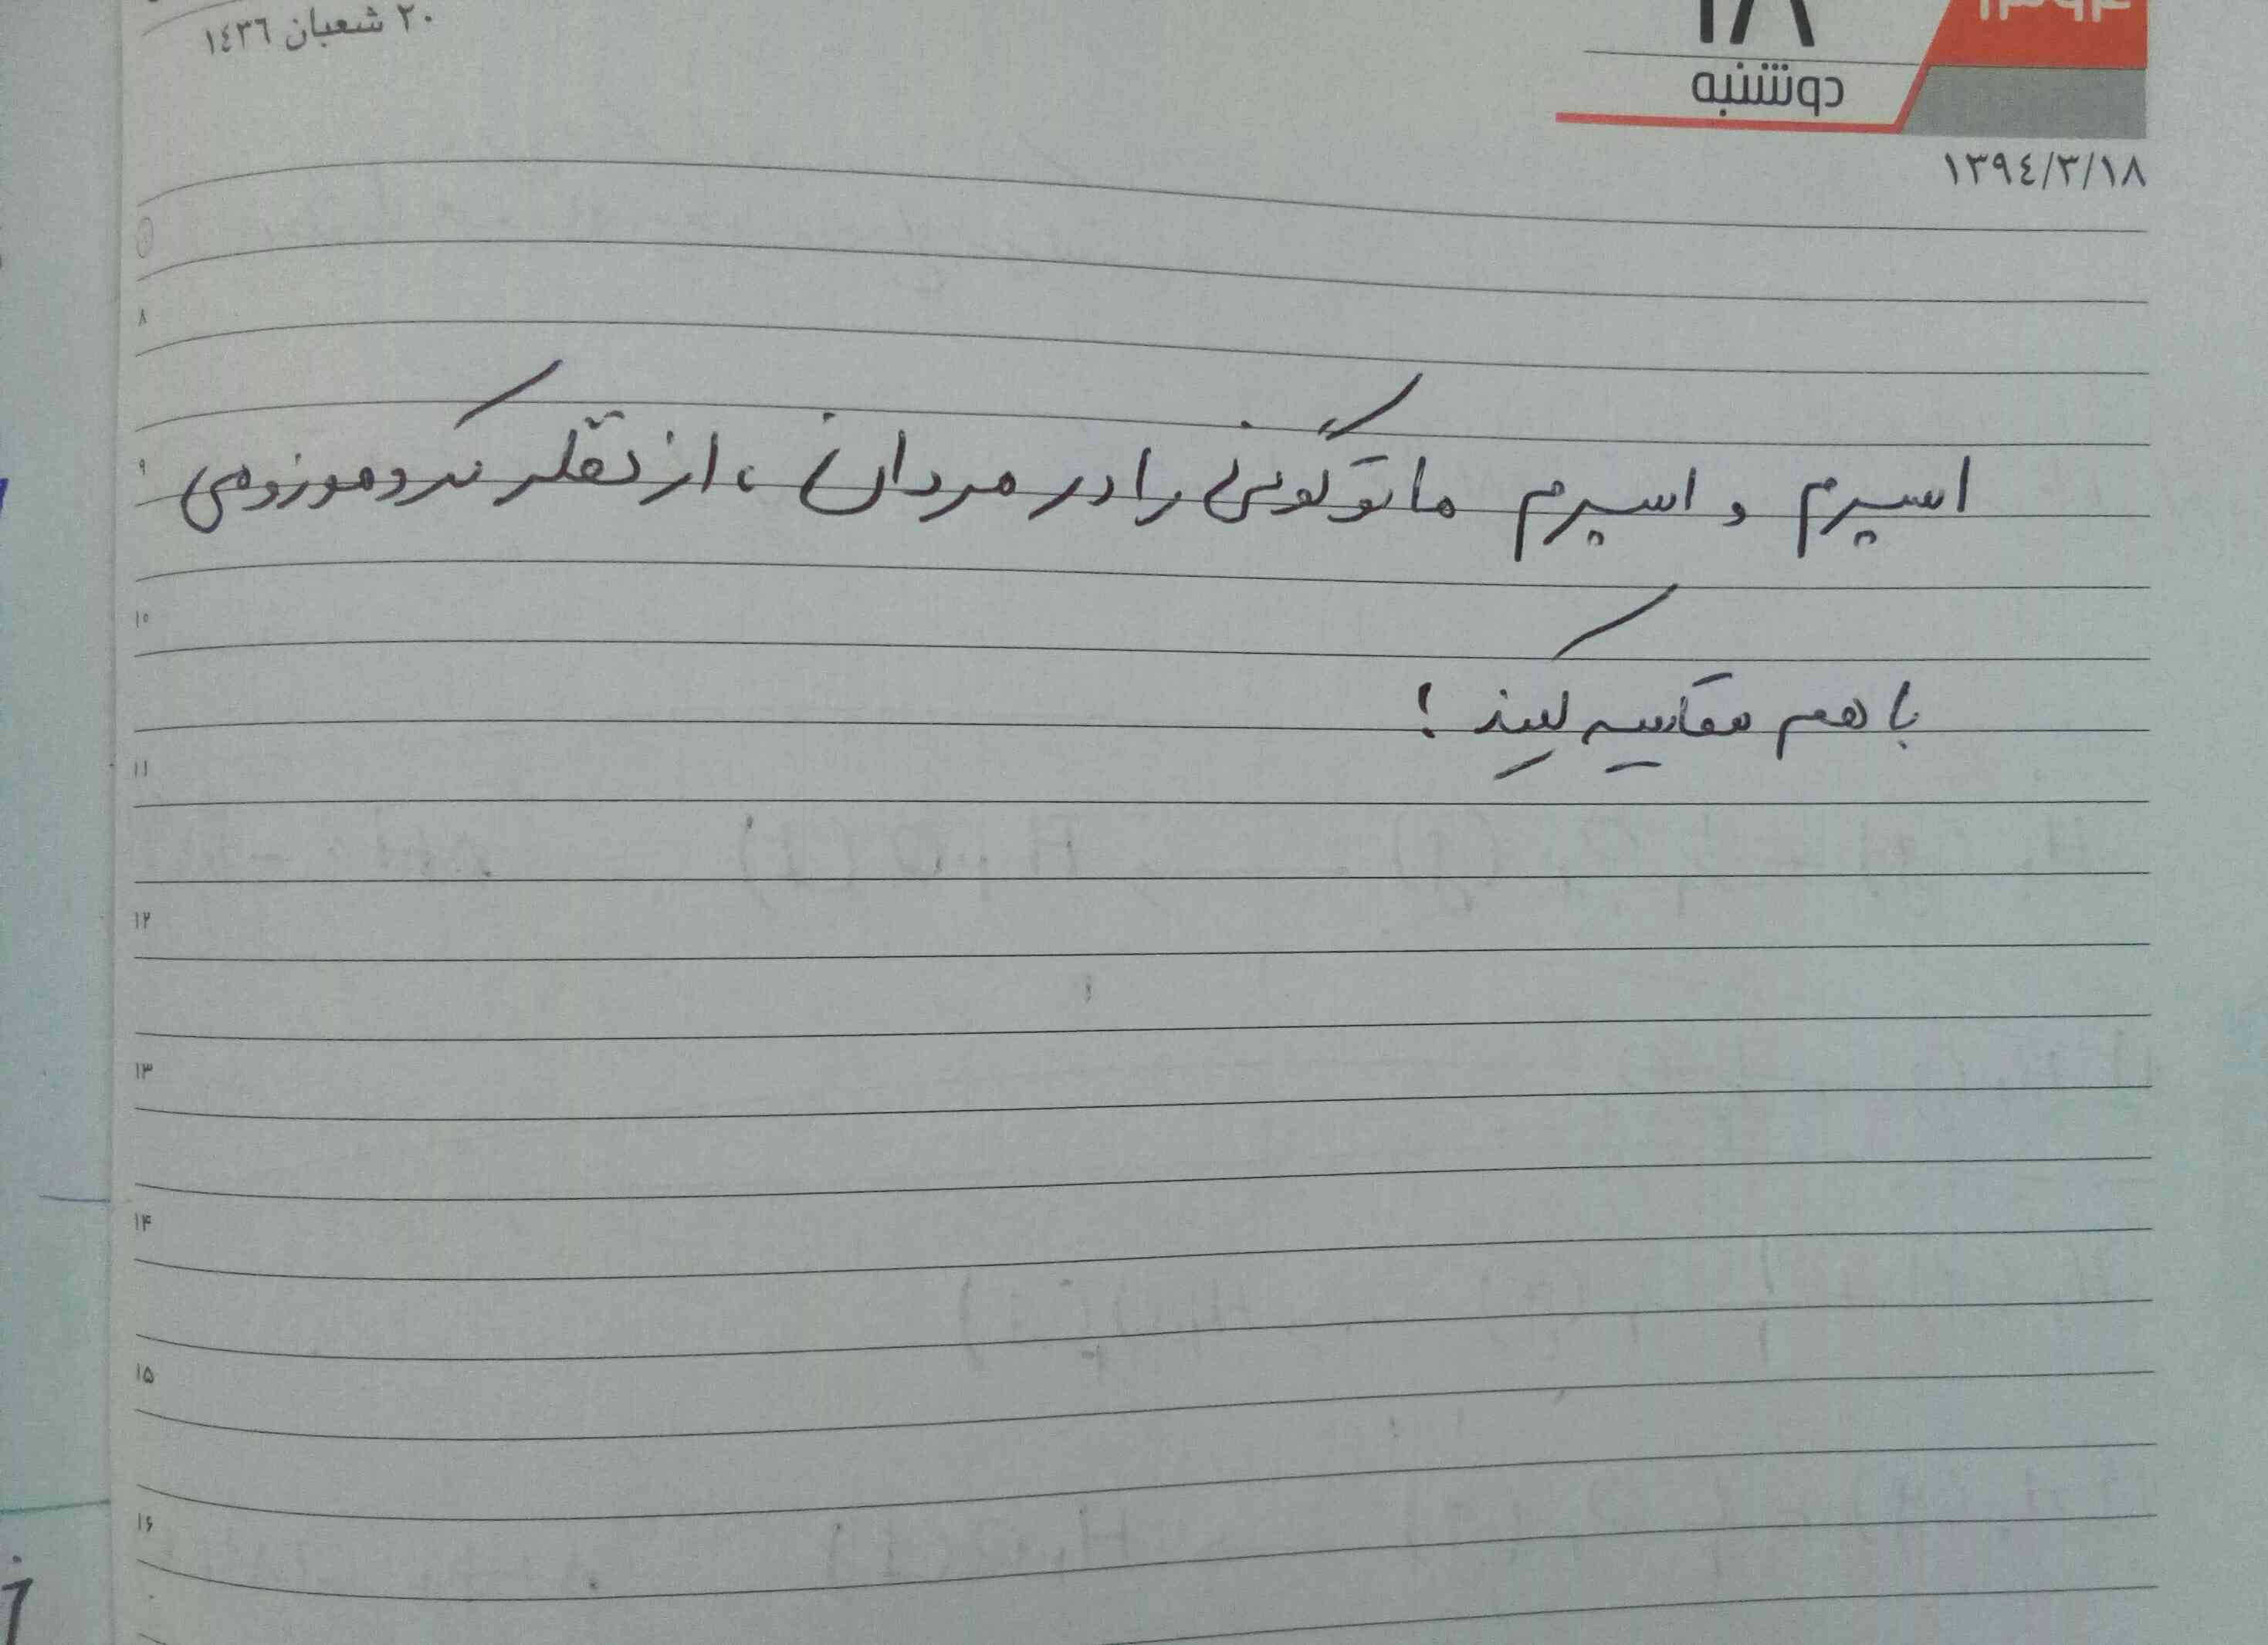 ۲۰ شعبان ۱٤۳٦
۱۳۹۴
۱۸
دوشنبه
۱۳۹٤/۳/۱۸
۸
اسپرم و اسپرم ماتوگونی را در مردان ، از نظر کروموزومی
۹
۱۰
با هم مقایسه کنید !
۱۱
۱۲
۱۳
۱۴
۱۵
۱۶